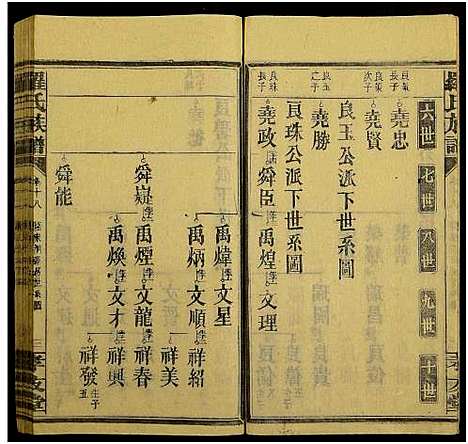 羅氏族譜
六世 七世 八世 九世 十世
良策長子 堯忠
良策次子 堯賢
良玉公派下世系圖
良玉之子 堯勝
良珠公派下世系圖
良珠長子 堯政 舜臣 禹煌 文理
禹煒 文星
禹炳 文順 祥紹
祥美
舜嶷 禹煙 文龍 祥春
禹煥 文才 祥興
祥發 生子五
舜能
羅氏族譜
卷十八
三
孝友堂